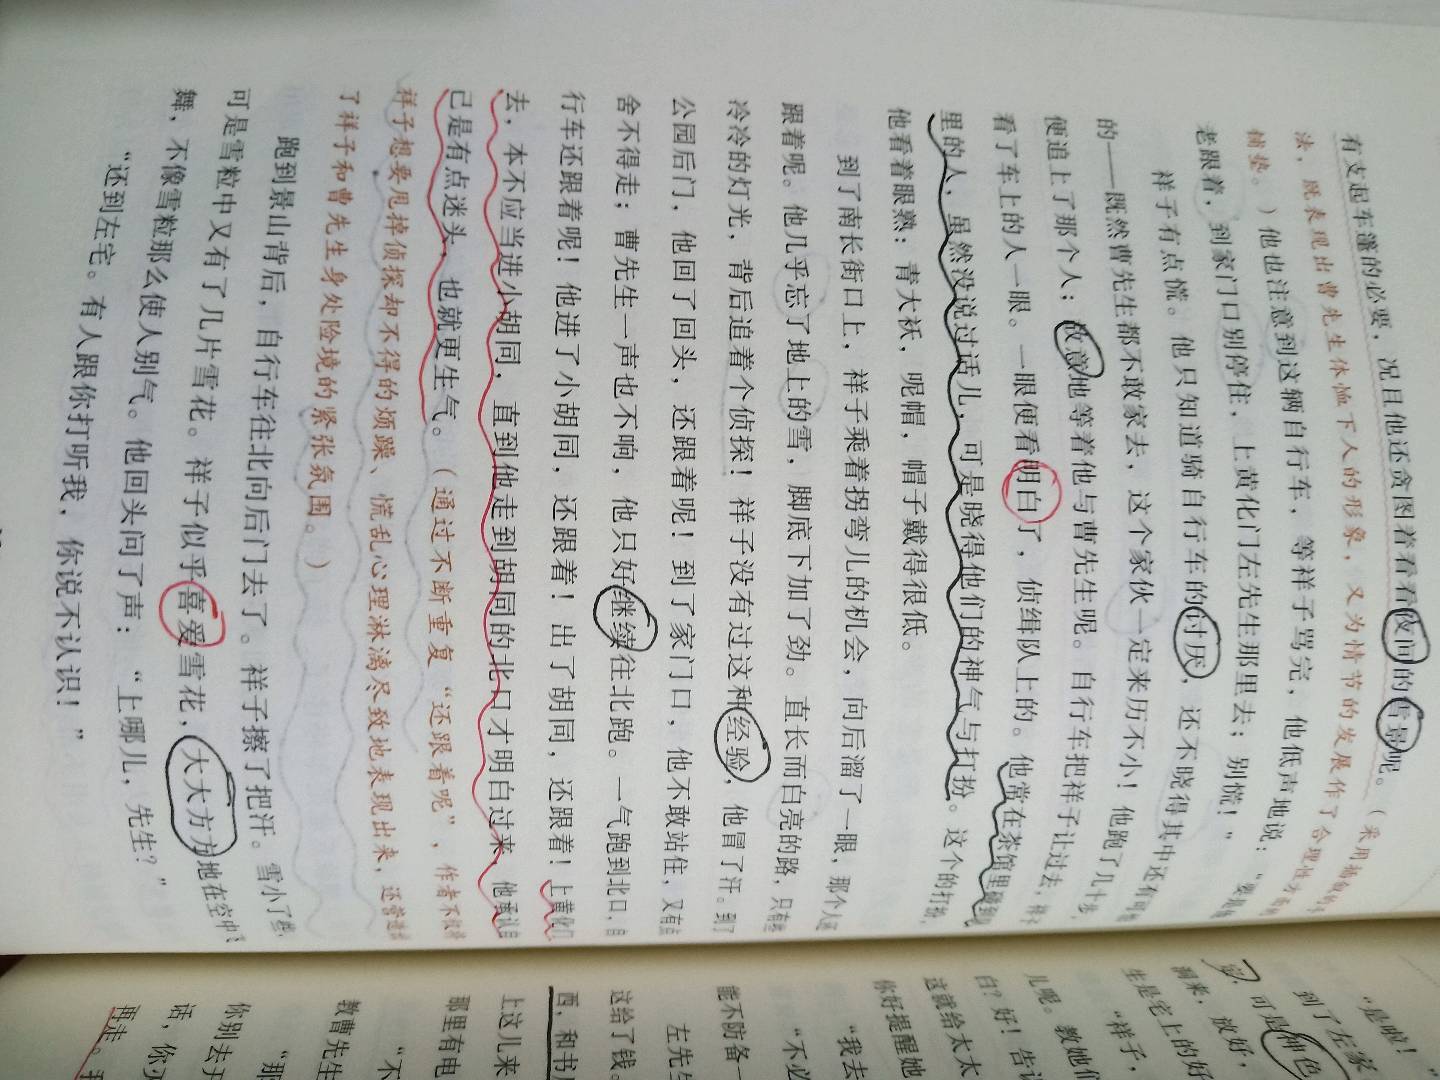 有支起车篷的必要，况且他还贪图着看看夜间的雪景呢。（采用
法，既表现出曹先生体恤下人的形象，又为情节的发展作了合理性
铺垫。）他也注意到这辆自行车，等祥子骂完，他低声地说：“要把
老跟着，到家门口别停住，上黄化门左先生那里去；别慌！”
祥子有点慌。他只知道骑自行车的讨厌，还不晓得其中还有
的——既然曹先生都不敢家去，这个家伙一定来历不小！他跑了几十步，
便追上了那个人；故意地等着他与曹先生呢。自行车把祥子让过去，祥子
看了车上的人一眼。一眼便看明白了，侦缉队上的。他常在茶馆里碰到
里的人，虽然没说过话儿，可是晓得他们的神气与打扮。这个的打扮，
他看着眼熟：青大袄，呢帽，帽子戴得很低。
到了南长街口上，祥子乘着拐弯儿的机会，向后溜了一眼，那个人还
跟着呢。他几乎忘了地上的雪，脚底下加了劲。直长而白亮的路，只有些
冷冷的灯光，背后追着个侦探！祥子没有过这种经验，他冒了汗。到了
公园后门，他回了回头，还跟着呢！到了家门口，他不敢站住，又有点
舍不得走；曹先生一声也不响，他只好继续往北跑。一气跑到北口，自
行车还跟着呢！他进了小胡同，还跟着！出了胡同，还跟着！上黄化门
去，本不应当进小胡同，直到他走到胡同的北口才明白过来，他承认自
己是有点迷头，也就更生气。（通过不断重复“还跟着呢”，作者不仅将
祥子想要甩掉侦探却不得的烦躁、慌乱心理淋漓尽致地表现出来，还营造出
了祥子和曹先生身处险境的紧张氛围。）
跑到景山背后，自行车往北向后门去了。祥子擦了把汗。雪小了些，
可是雪粒中又有了几片雪花。祥子似乎喜爱雪花，大大方方地在空中飞
舞，不像雪粒那么使人别气。他回头问了声：“上哪儿，先生？”
“还到左宅。有人跟你打听我，你说不认识！”
“是啦！”
到了左家
可是神色
洞来，放好，
生是宅上的好
“祥子，
儿呢。教她们
白？好！告诉
这就给太太
你好提醒她
“我去
“不必
能不防备一
左先生
这给了钱。
西，和书
上这儿来
那里有电
“不
教曹先生
“那
你别去开
话，你
再走。我